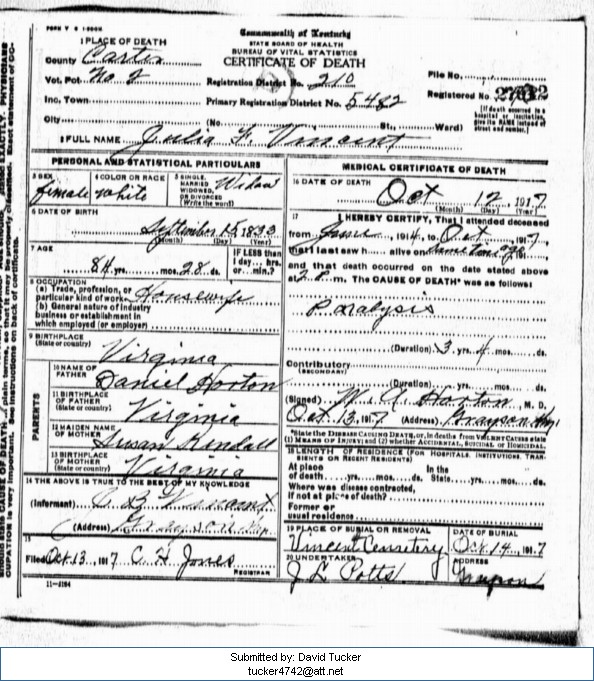 FORM V S 1-300M
Commonwealth of Kentucky
STATE BOARD OF HEALTH
BUREAU OF VITAL STATISTICS
CERTIFICATE OF DEATH
1 PLACE OF DEATH
County Carter
Vot. Pct. No 2
Registration District No. 210
File No.
Inc. Town
Primary Registration District No. 5482
Registered No.
City (No. St., Ward)
[If death occurred in a hospital or institution, give its NAME instead of street and number.]
2 FULL NAME Julia F. Vincent
PERSONAL AND STATISTICAL PARTICULARS
3 SEX female
4 COLOR OR RACE white
5 SINGLE, MARRIED WIDOWED, OR DIVORCED (Write the word) Widow
6 DATE OF BIRTH
September 15 1833
(Month) (Day) (Year)
7 AGE
84 yrs. mos. 28 ds.
IF LESS than 1 day... hrs. or... min.?
8 OCCUPATION
(a) Trade, profession, or particular kind of work Housewife
(b) General nature of industry business or establishment in which employed (or employer)
9 BIRTHPLACE
(State or country) Virginia
PARENTS
10 NAME OF FATHER Daniel Horton
11 BIRTHPLACE OF FATHER (State or country) Virginia
12 MAIDEN NAME OF MOTHER Susan Kendall
13 BIRTHPLACE OF MOTHER (State or country) Virginia
14 THE ABOVE IS TRUE TO THE BEST OF MY KNOWLEDGE
(Informant) C B Vincent
(Address) Grayson Ky.
15
Filed Oct 13, 1917 C. H. Jones
REGISTRAR
11-3184
MEDICAL CERTIFICATE OF DEATH
16 DATE OF DEATH
Oct 12, 1917
(Month) (Day) (Year)
17 I HEREBY CERTIFY, That I attended deceased
from June, 1914, to Oct, 1917,
that I last saw h alive on 191
and that death occurred on the date stated above
at 2 P. m. The CAUSE OF DEATH* was as follows:
Paralysis
(Duration) 3 yrs. 4 mos. ds.
Contributory
(SECONDARY)
(Duration) yrs. mos. ds.
(Signed) W. A. Horton, M. D.
Oct 13, 1917 (Address) Grayson Ky
*State the DISEASE CAUSING DEATH, or in deaths from VIOLENT CAUSES state (1) MEANS OF INJURY; and (2) whether ACCIDENTAL, SUICIDAL or HOMICIDAL.
18 LENGTH OF RESIDENCE (FOR HOSPITALS, INSTITUTIONS, TRANSIENTS OR RECENT RESIDENTS)
At place of death yrs. mos. ds. In the State yrs. mos. ds.
Where was disease contracted, if not at place of death?
Former or usual residence
19 PLACE OF BURIAL OR REMOVAL Vincent Cemetery
DATE OF BURIAL Oct 14, 1917
20 UNDERTAKER J L Potts
ADDRESS Grayson
Submitted by: David Tucker
tucker4742@att.net